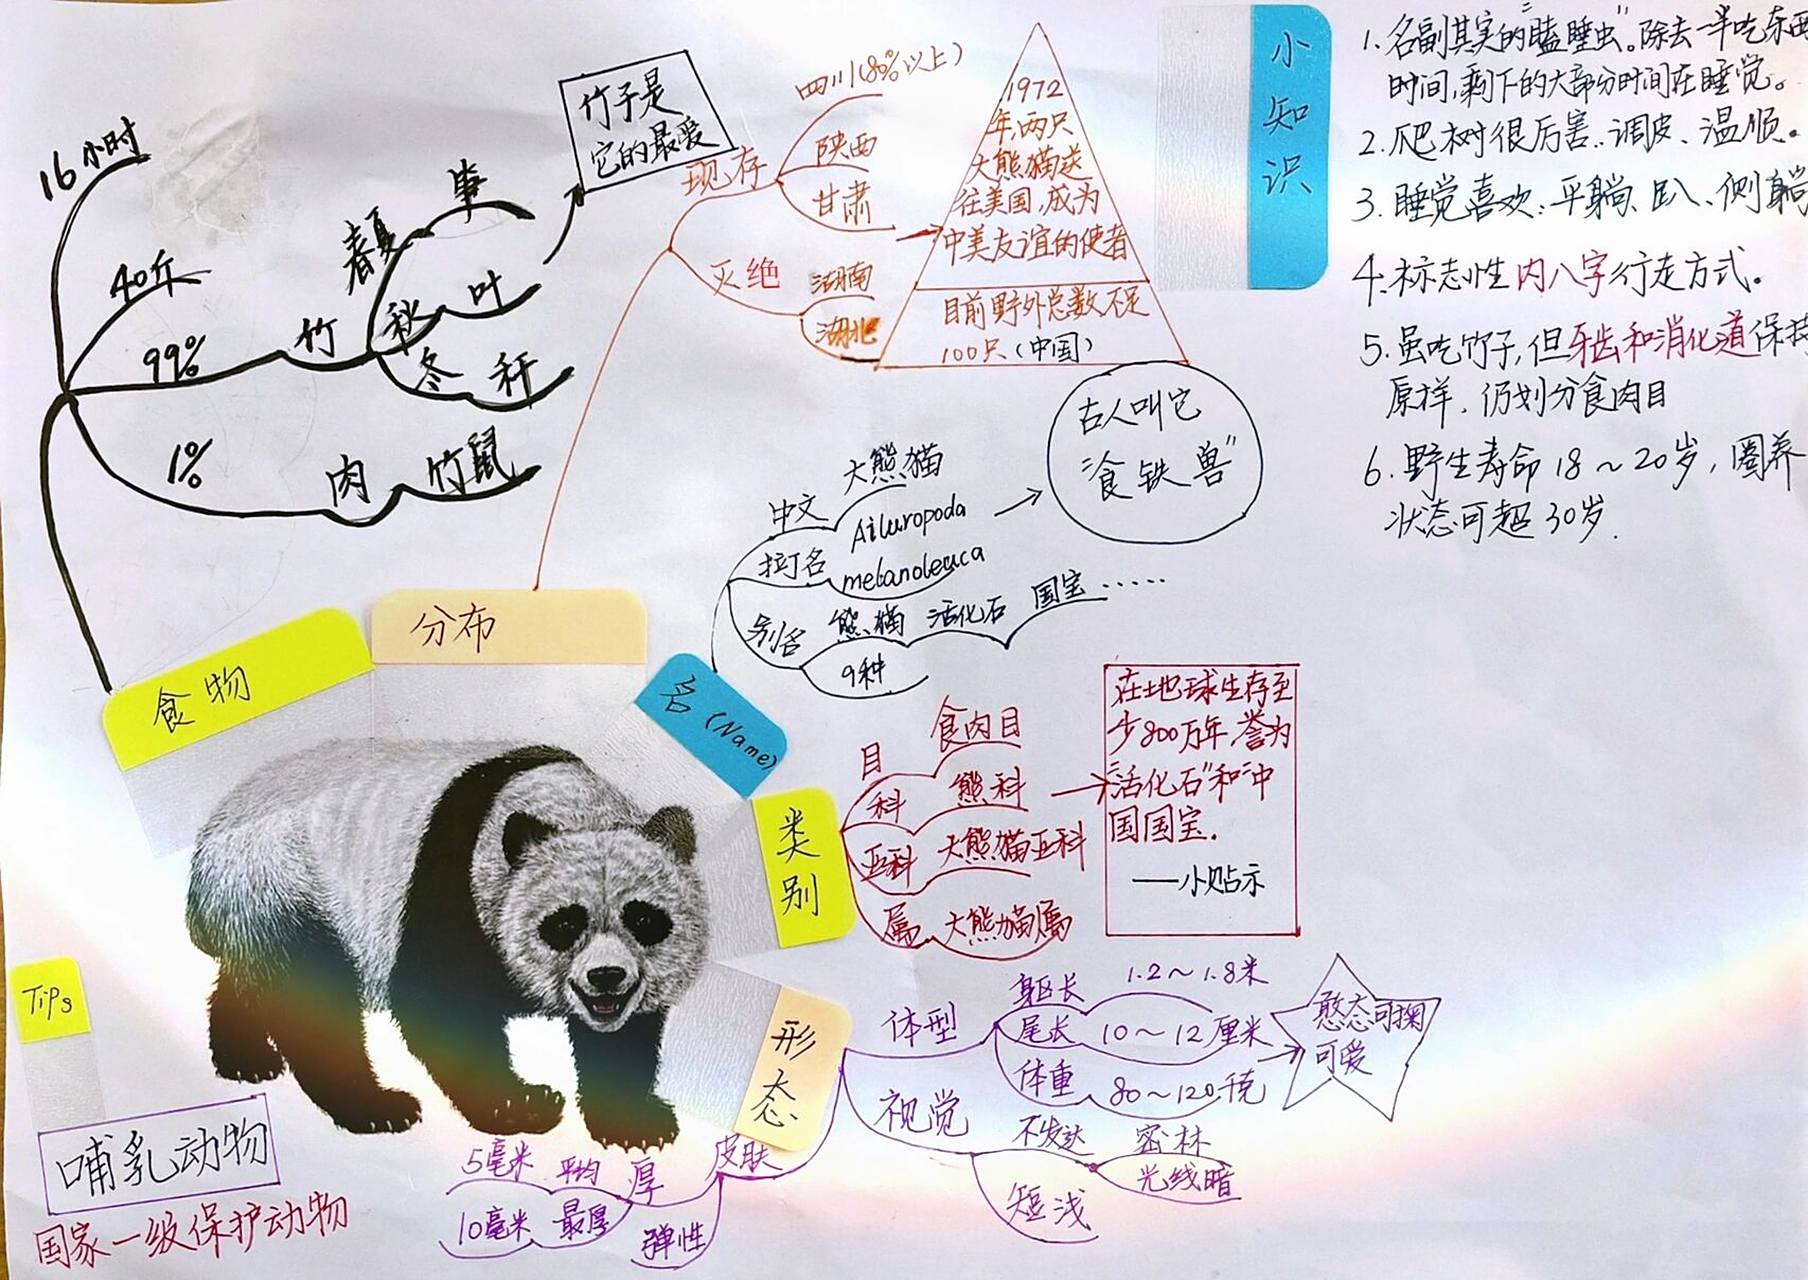 16小时
40斤
99%
竹
春夏
笋
秋
叶
冬
秆
1%
肉
竹鼠
竹子是
它的最爱
食物
分布
现存
四川(80%以上)
陕西
甘肃
灭绝
湖南
湖北
1972
年,两只
大熊猫送
往美国,成为
中美友谊的使者
目前野外总数不足
100只(中国)
名(Name)
中文
大熊猫
拉丁名
Ailuropoda
melanoleuca
别名
熊猫 活化石 国宝……
9种
古人叫它
"食铁兽"
类别
目
食肉目
科
熊科
亚科
大熊猫亚科
属
大熊猫属
在地球生存至
少800万年,誉为
"活化石"和"中
国国宝.
——小贴示
形态
体型
身区长
1.2～1.8米
尾长
10～12厘米
体重
80～120千克
憨态可掬
可爱
视觉
不发达
密林
光线暗
短浅
皮肤
厚
平均
5毫米
最厚
10毫米
弹性
小知识
1.名副其实的"瞌睡虫"。除去一半吃东西
时间,剩下的大部分时间在睡觉。
2.爬树很厉害..调皮、温顺。
3.睡觉喜欢:平躺、趴、侧躺
4.标志性内八字行走方式。
5.虽吃竹子,但牙齿和消化道保持
原样,仍划分食肉目
6.野生寿命18～20岁,圈养
状态可超30岁.
Tips
哺乳动物
国家一级保护动物